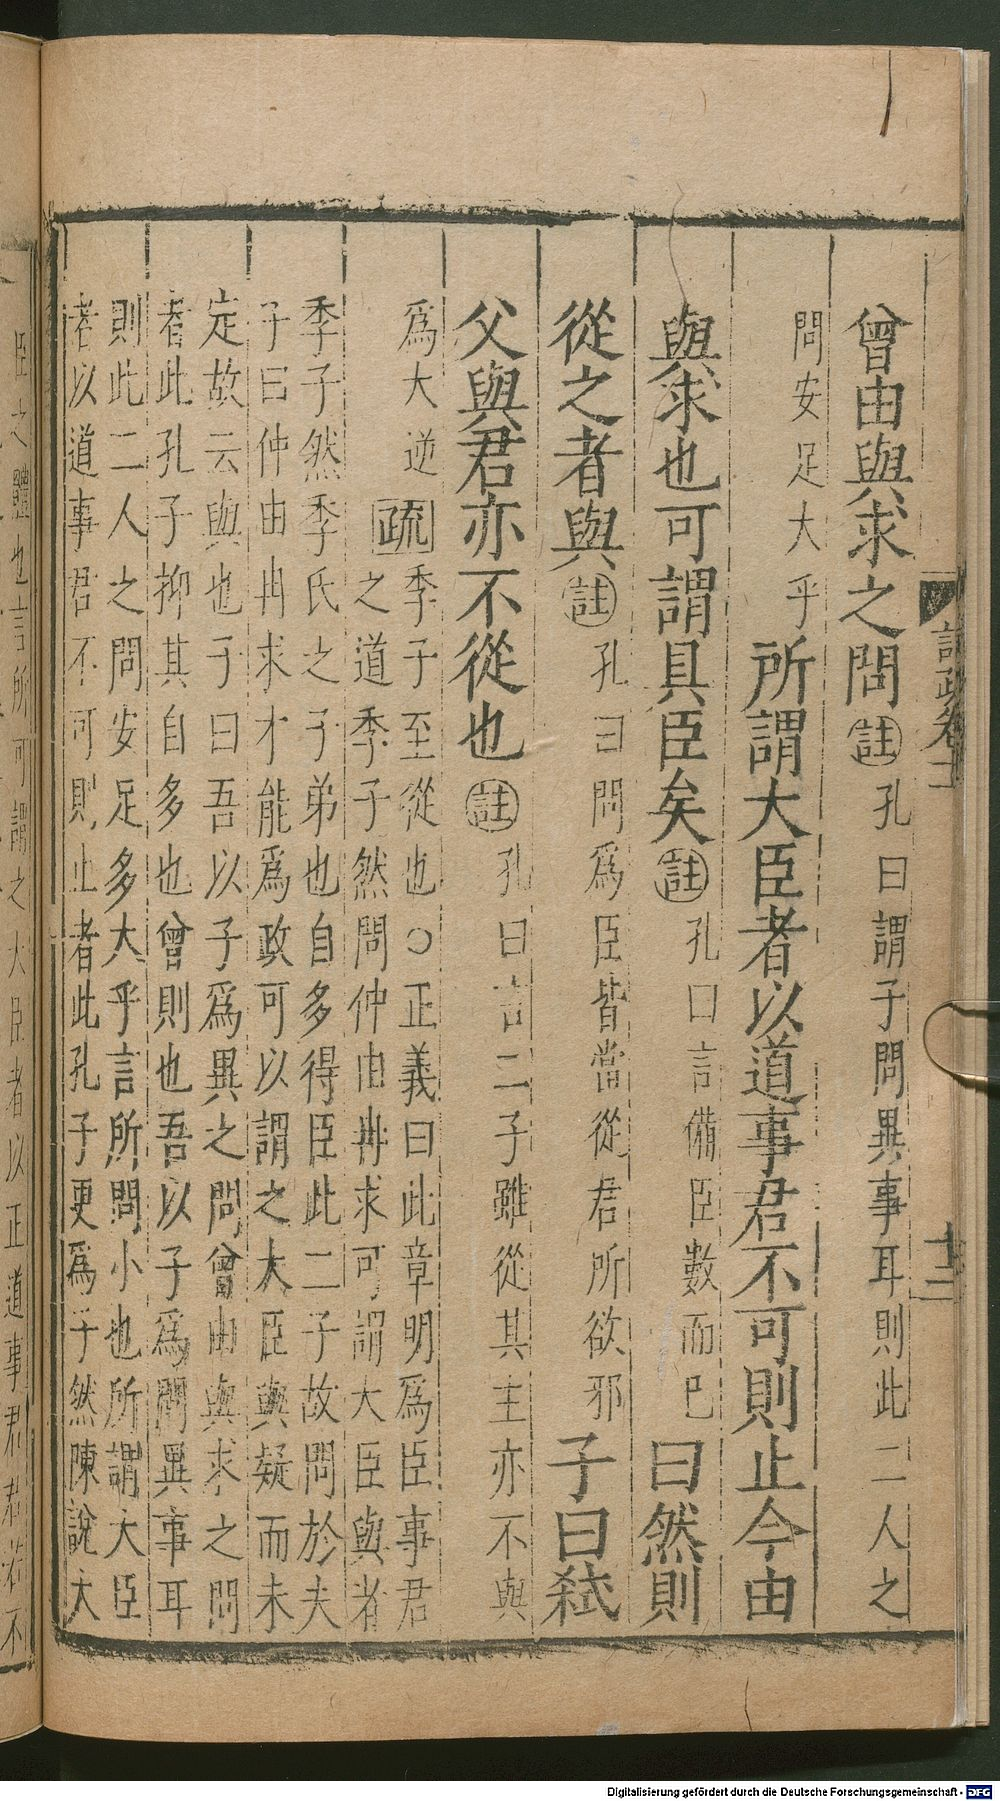 曾由與求之問註孔曰謂子問異事耳則此二人之
問安足大乎所謂大臣者以道事君不可則止今由
與求也可謂具臣矣註孔曰言備臣數而已曰然則
從之者與註孔曰問爲臣皆當從君所欲邪子曰弑
父與君亦不從也註孔曰言二子雖從其主亦不與
爲大逆疏季子至從也○正義曰此章明爲臣事君
之道季子然問仲由冉求可謂大臣與者
季子然季氏之子弟也自多得臣此二子故問於夫
子曰仲由冉求才能爲政可以謂之大臣與疑而未
定故云與也子曰吾以子爲異之問曾由與求之問
者此孔子抑其自多也曾則也吾以子爲問異事耳
則此二人之問安足多大乎言所問小也所謂大臣
者以道事君不可則止者此孔子更爲子然陳說大
臣之體也言所可謂之大臣者以正道事君君若不
十二
Digitalisierung gefördert durch die Deutsche Forschungsgemeinschaft - DFG